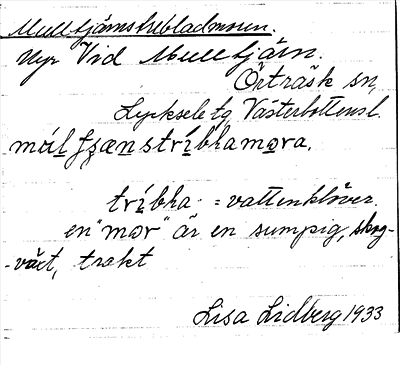 Mulltjärnstrebladmoren.
Myr Vid Mulltjärn.
Örträsk sn,
Lycksele tg Västerbottensl.
tríbha = vattenklöver.
en "mor" är en sumpig, skog-
-växt, trakt
Lisa Lidberg 1933